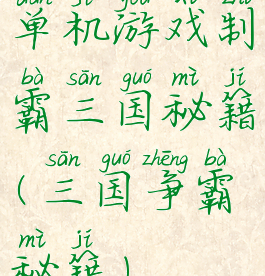 dān jī yóu xì zhì
单机游戏制
bà sān guó mì jí
霸三国秘籍
sān guó zhēng bà
(三国争霸
mì jí
秘籍)